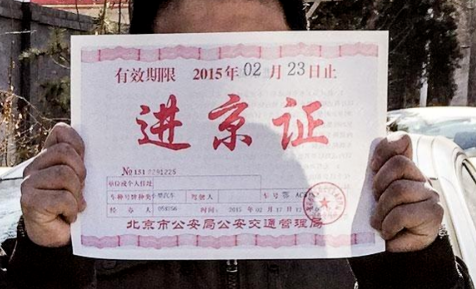 有效期限 2015年02月23日止
进京证
№131 2291225
单位或个人住址
车种号牌种类 小型汽车 驾驶人 车号 鄂
经办人 时间: 2015年02月17日
北京市公安局公安交通管理局